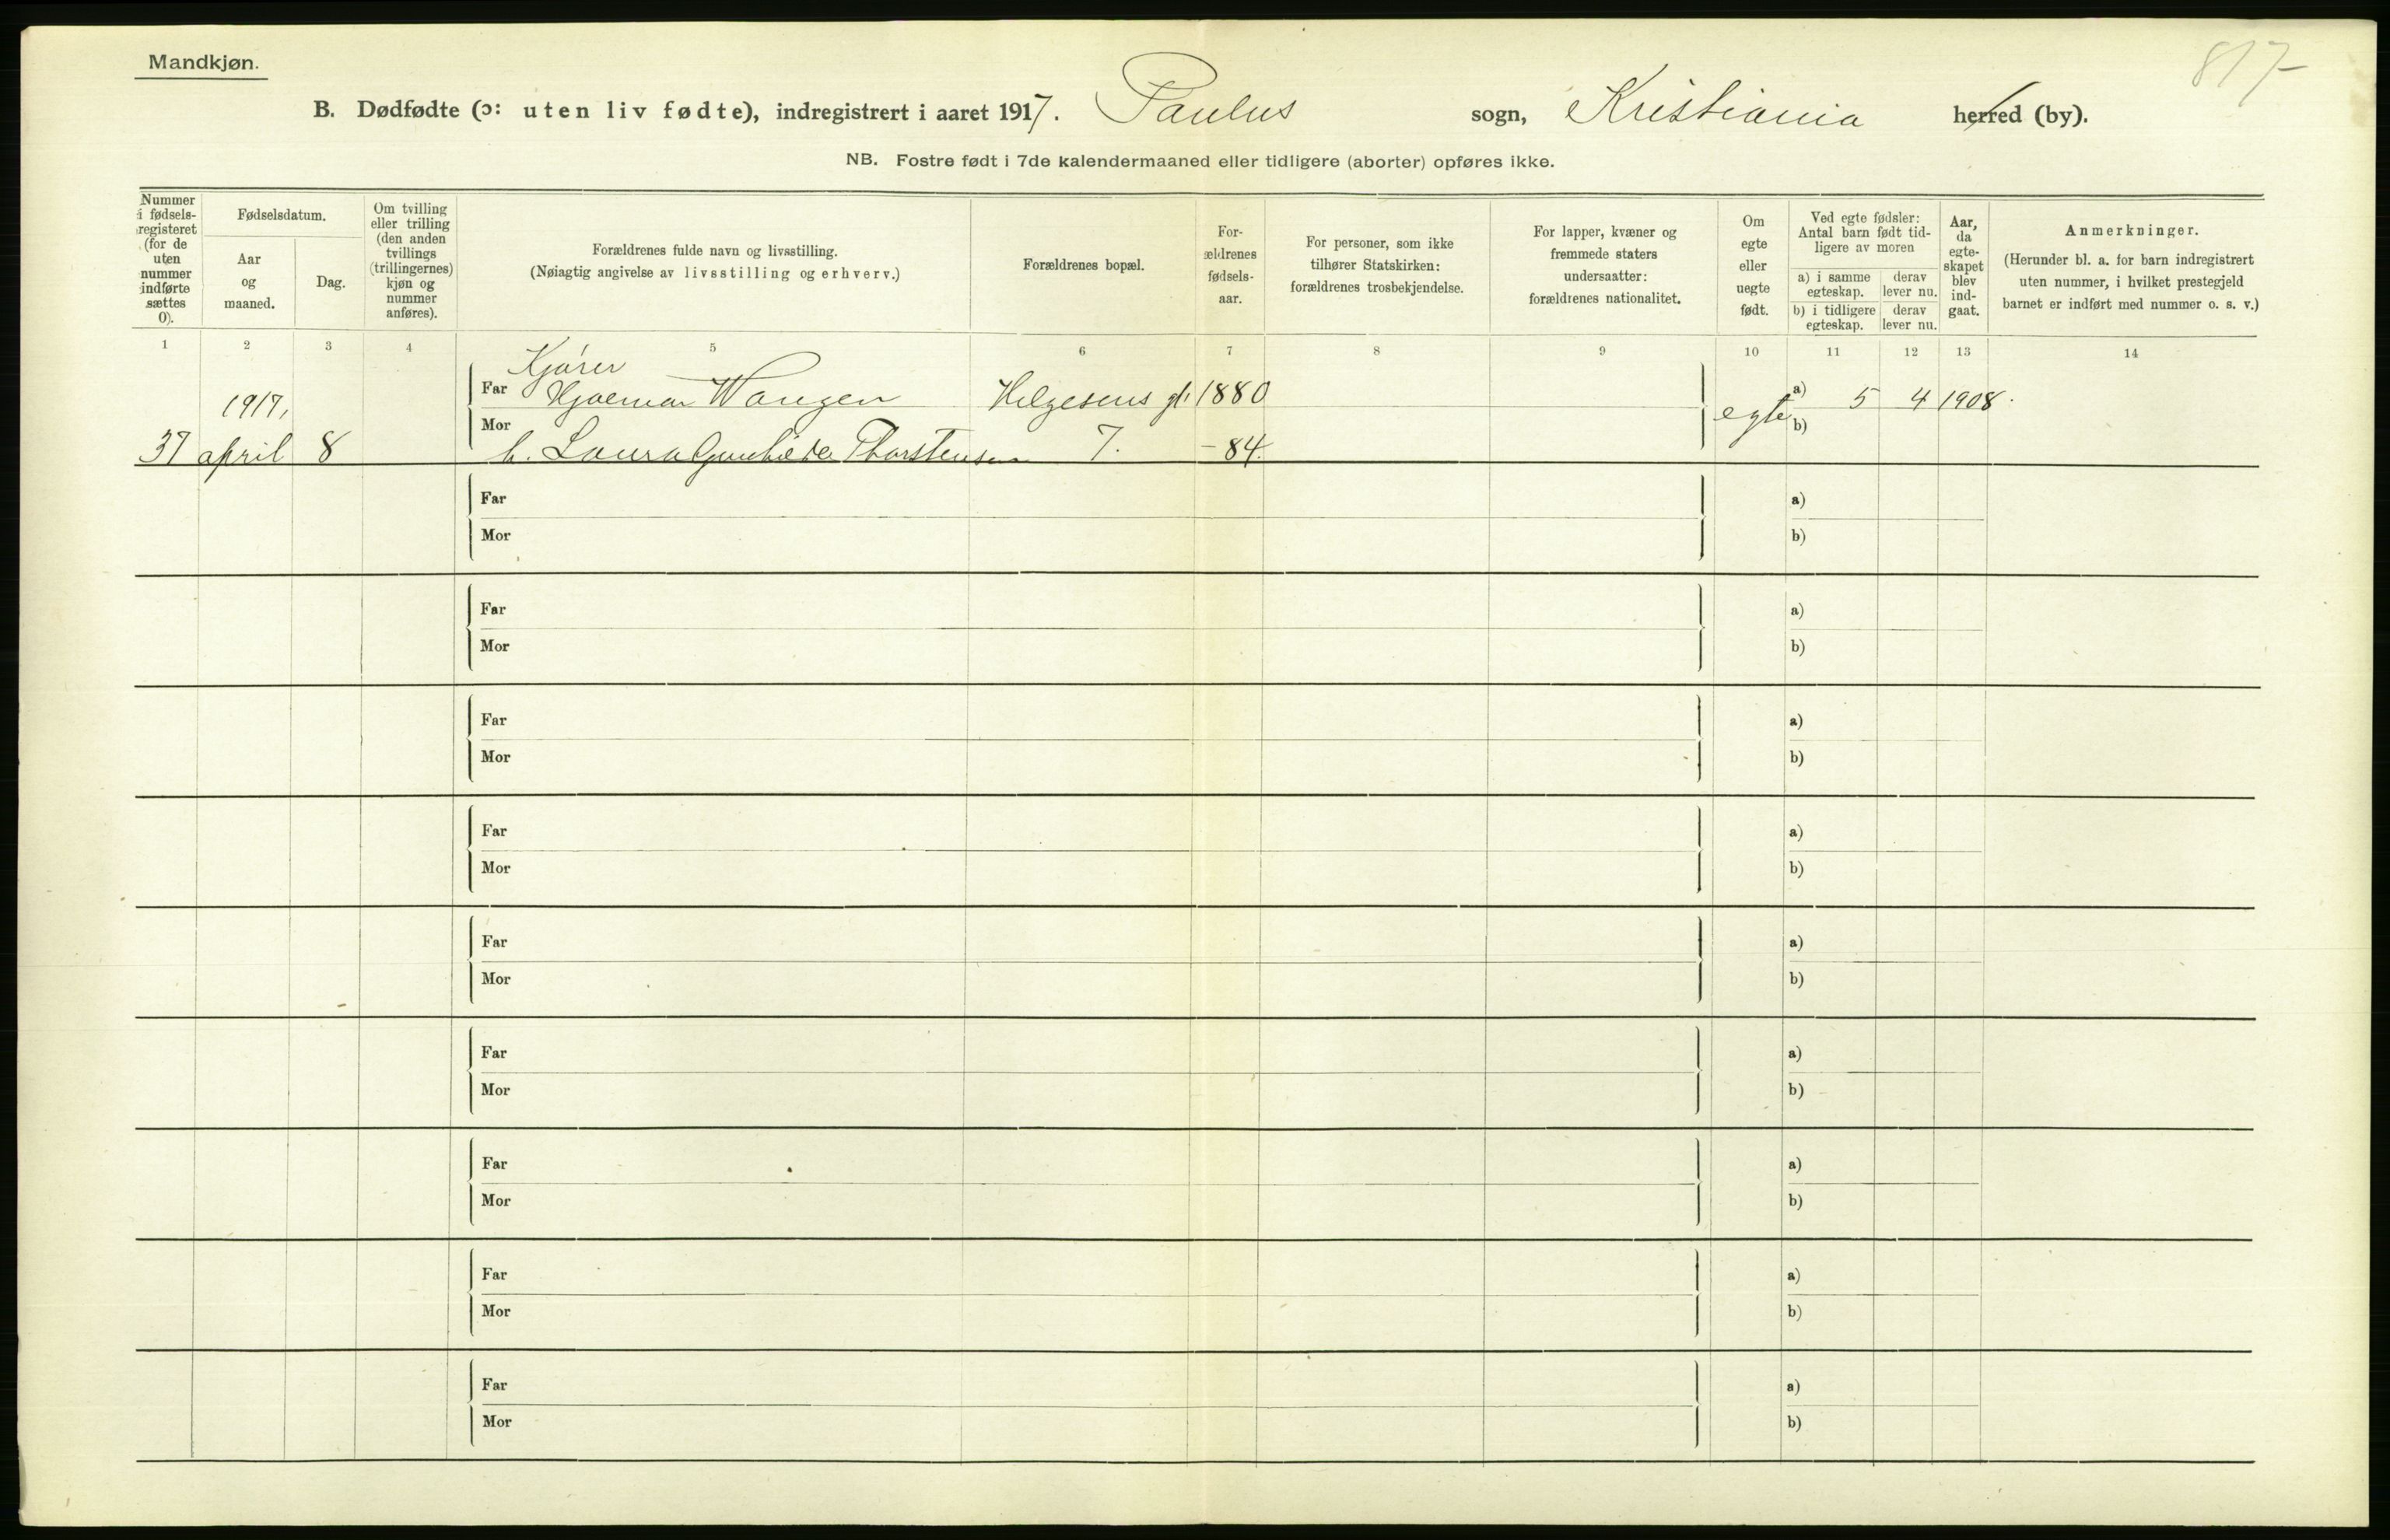 Mandkjøn.
817
B. Dødfødte (ɔ: uten liv fødte), indregistrert i aaret 1917. Paulus sogn, Kristiania herred (by).
NB. Fostre født i 7de kalendermaaned eller tidligere (aborter) opføres ikke.
Nummer
i fødsels-
registeret
(for de
uten
nummer
indførte
sættes
0).
Fødselsdatum.
Aar
og
maaned.
Dag.
Om tvilling
eller trilling
(den anden
tvillings
(trillingernes)
kjøn og
nummer
anføres).
Forældrenes fulde navn og livsstilling.
(Nøiagtig angivelse av livsstilling og erhverv.)
Forældrenes bopæl.
For-
ældrenes
fødsels-
aar.
For personer, som ikke
tilhører Statskirken:
forældrenes trosbekjendelse.
For lapper, kvæner og
fremmede staters
undersaatter:
forældrenes nationalitet.
Om
egte
eller
uegte
født.
Ved egte fødsler:
Antal barn født tid-
ligere av moren
a) i samme
egteskap.
derav
lever nu.
b) i tidligere
egteskap.
derav
lever nu.
Aar,
da
egte-
skapet
blev
ind-
gaat.
Anmerkninger.
(Herunder bl. a. for barn indregistrert
uten nummer, i hvilket prestegjeld
barnet er indført med nummer o. s. v.)
1 2 3 4 5 6 7 8 9 10 11 12 13 14
Kjører
1917, Far Hjalmar Wangen Helgesens gt. 1880 egte a) 5 4 1908.
37 april 8 Mor h. Laura Thorstensen 7. -84. b)
Far a)
Mor b)
Far a)
Mor b)
Far a)
Mor b)
Far a)
Mor b)
Far a)
Mor b)
Far a)
Mor b)
Far a)
Mor b)
Far a)
Mor b)
Far a)
Mor b)